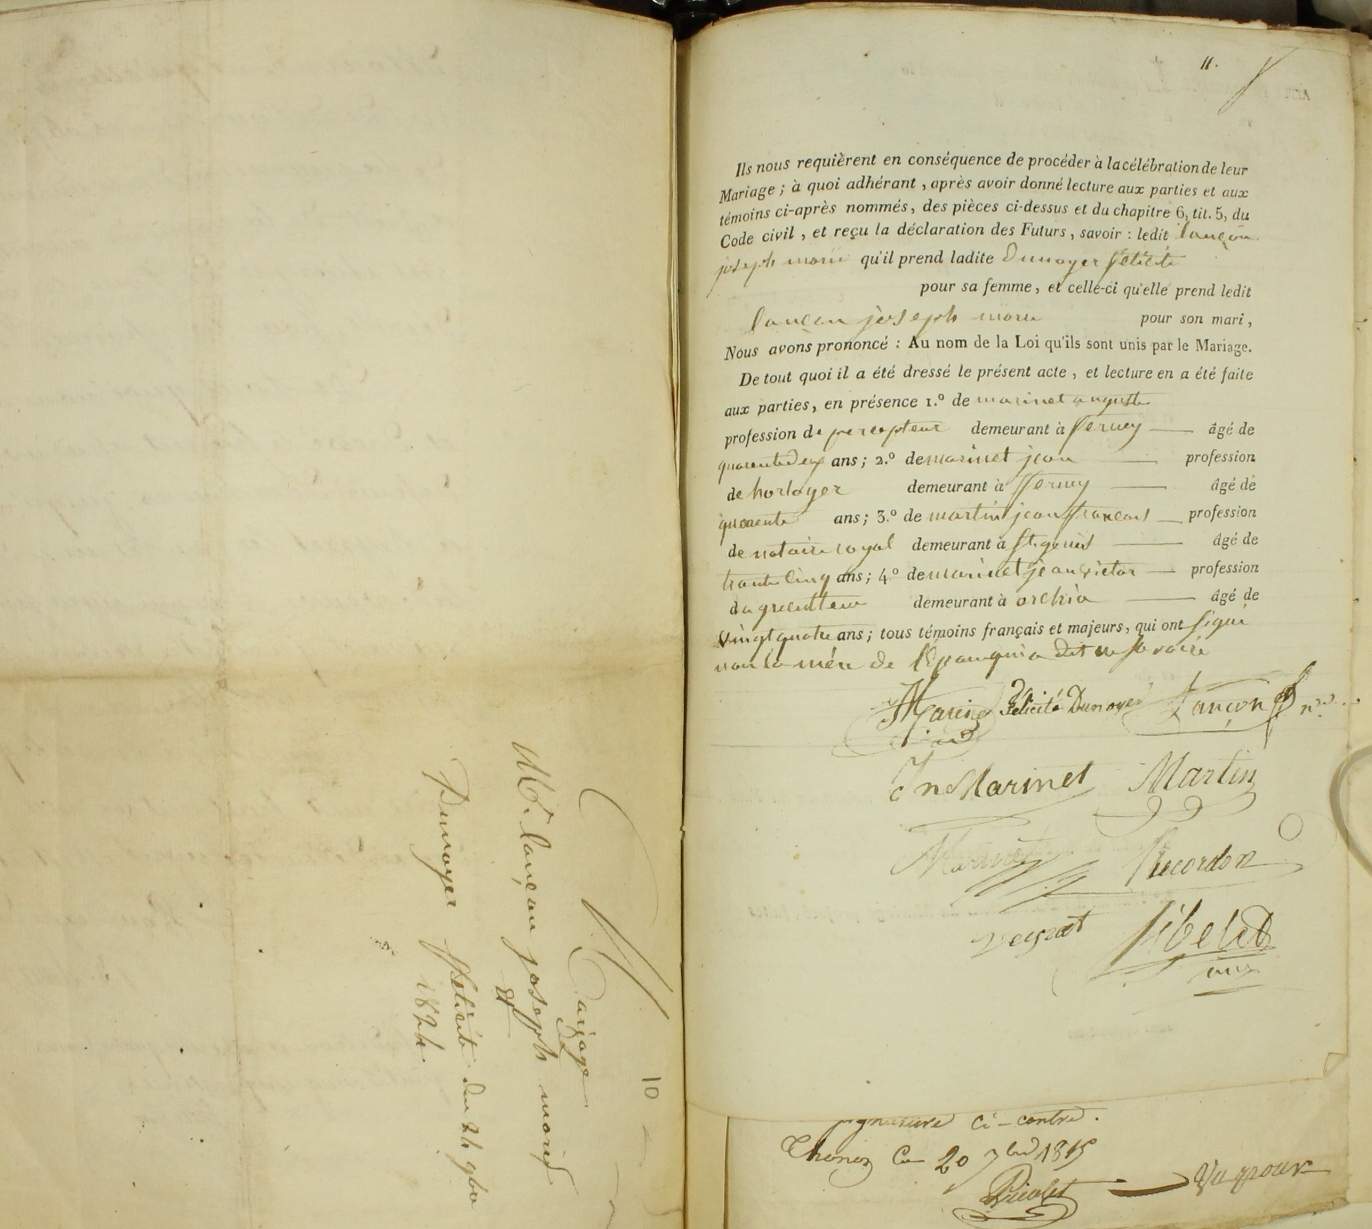 Mariage
Mr. lançon joseph marie
et
Dunoyer ffelicité du 24 9bre
1824.
10
11.
Ils nous requièrent en conséquence de procéder à la célébration de leur
Mariage ; à quoi adhérant , après avoir donné lecture aux parties et aux
témoins ci-après nommés, des pièces ci-dessus et du chapitre 6, tit. 5, du
Code civil , et reçu la déclaration des Futurs , savoir : ledit lançon
joseph marie qu'il prend ladite Dunoyer ffelicité
pour sa femme, et celle-ci qu'elle prend ledit
lançon joseph marie pour son mari ,
Nous avons prononcé : Au nom de la Loi qu'ils sont unis par le Mariage.
De tout quoi il a été dressé le présent acte , et lecture en a été faite
aux parties, en présence 1.º de marinet auguste
profession de percepteur demeurant à fferney — âgé de
quarentedeux ans ; 2.º de marinet jean — profession
de horloger demeurant à fferney — âgé de
quarente ans ; 3.º de martin jean ffrancois — profession
de notaire royal demeurant à st genis — âgé de
trante cinq ans ; 4.º de marinet jean victor — profession
d'agriculteur demeurant à orchia — âgé de
vingt quatre ans ; tous témoins français et majeurs, qui ont signé
non la mére de l'Epou qui a dit ne savoir
Marinet Félicité Dunoyer Lançon
Jn Marinet Martin
Marinet Recordon
Veyrat
signature ci-contre.
Thonon Ce 20 7bre 1815